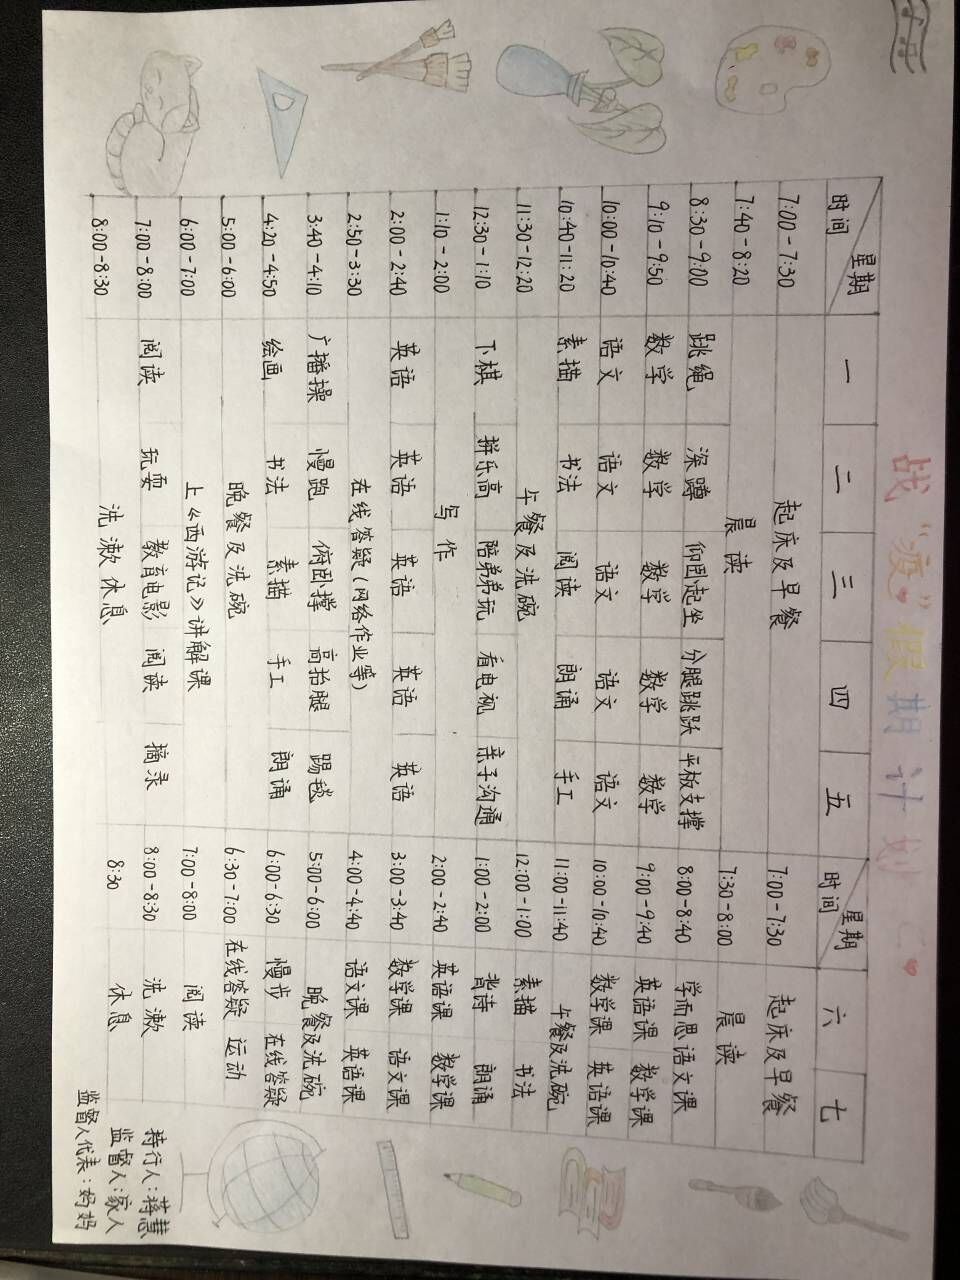 战“疫”假期计划
时间 星期 一 二 三 四 五 时间 星期 六 七
7:00-7:30 起床及早餐 7:00-7:30 起床及早餐
7:40-8:20 晨读 7:30-8:00 晨读
8:30-9:00 跳绳 深蹲 仰卧起坐 分腿跳跃 平板支撑 8:00-8:40 学而思语文课
9:10-9:50 数学 数学 数学 数学 数学 9:00-9:40 英语课 数学课
10:00-10:40 语文 语文 语文 语文 语文 10:00-10:40 数学课 英语课
10:40-11:20 素描 书法 阅读 朗诵 手工 11:00-11:40 午餐及洗碗
11:30-12:20 午餐及洗碗 12:00-1:00 素描 书法
12:30-1:10 下棋 拼乐高 陪弟弟玩 看电视 亲子沟通 1:00-2:00 背诗 朗诵
1:10-2:00 写作 2:00-2:40 英语课 数学课
2:00-2:40 英语 英语 英语 英语 英语 3:00-3:40 数学课 语文课
2:50-3:30 在线答疑(网络作业等) 4:00-4:40 语文课 英语课
3:40-4:10 广播操 慢跑 俯卧撑 高抬腿 踢毽 5:00-6:00 晚餐及洗碗
4:20-4:50 绘画 书法 素描 手工 朗诵 6:00-6:30 慢步 在线答疑
5:00-6:00 晚餐及洗碗 6:30-7:00 在线答疑 运动
6:00-7:00 上《西游记》讲解课 7:00-8:00 阅读
7:00-8:00 阅读 玩耍 教育电影 阅读 摘录 8:00-8:30 洗漱
8:00-8:30 洗漱休息 8:30 休息
持行人:蒋慧
监督人:家人
监督人代表:妈妈